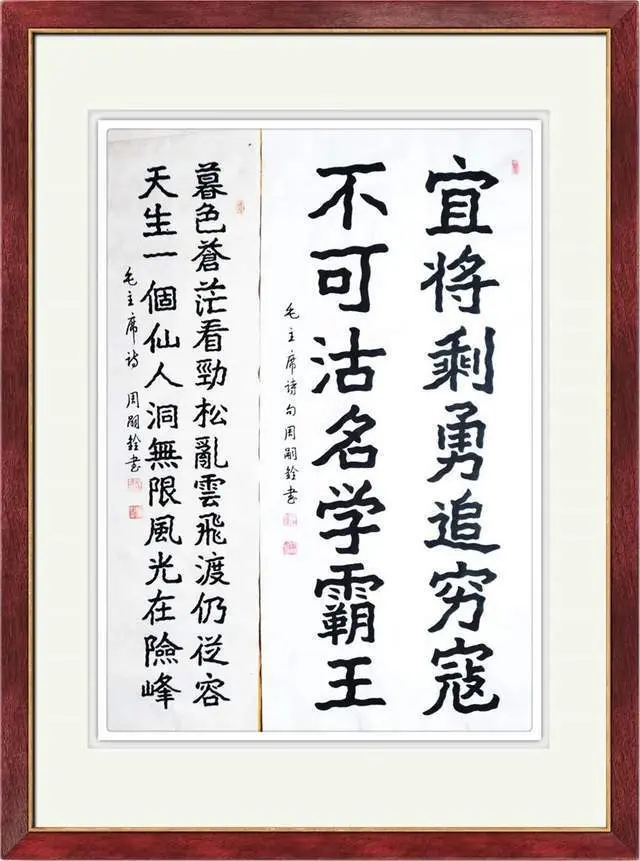 宜将剩勇追穷寇
不可沽名学霸王
毛主席诗句周嗣銓书
暮色蒼茫看勁松亂雲飛渡仍従容
天生一個仙人洞無限風光在險峰
毛主席诗 周嗣銓书